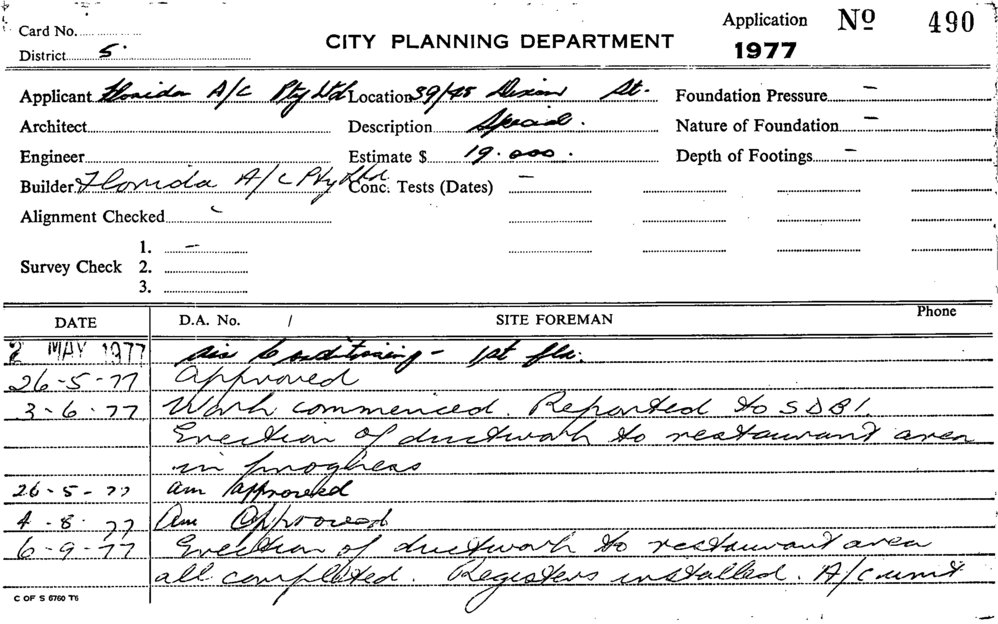 Card No.
District 5.
CITY PLANNING DEPARTMENT
Application No 490
1977
Applicant Florida A/C Pty Ltd Location 39/45 Dixon St. Foundation Pressure —
Architect Description Special. Nature of Foundation —
Engineer Estimate $ 19.000. Depth of Footings —
Builder Florida A/C Pty Ltd Conc. Tests (Dates) —
Alignment Checked
Survey Check 1. —
2.
3.
DATE D.A. No. / SITE FOREMAN Phone
2 MAY 1977 Air Conditioning - 1st flr.
26-5-77 Approved
3-6-77 Work commenced. Reported to SDBI.
Erection of ductwork to restaurant area
in progress
26-5-77 am approved
4-8-77 Am Approved
6-9-77 Erection of ductwork to restaurant area
all completed. Registers installed. A/C unit
C OF S 6760 T6